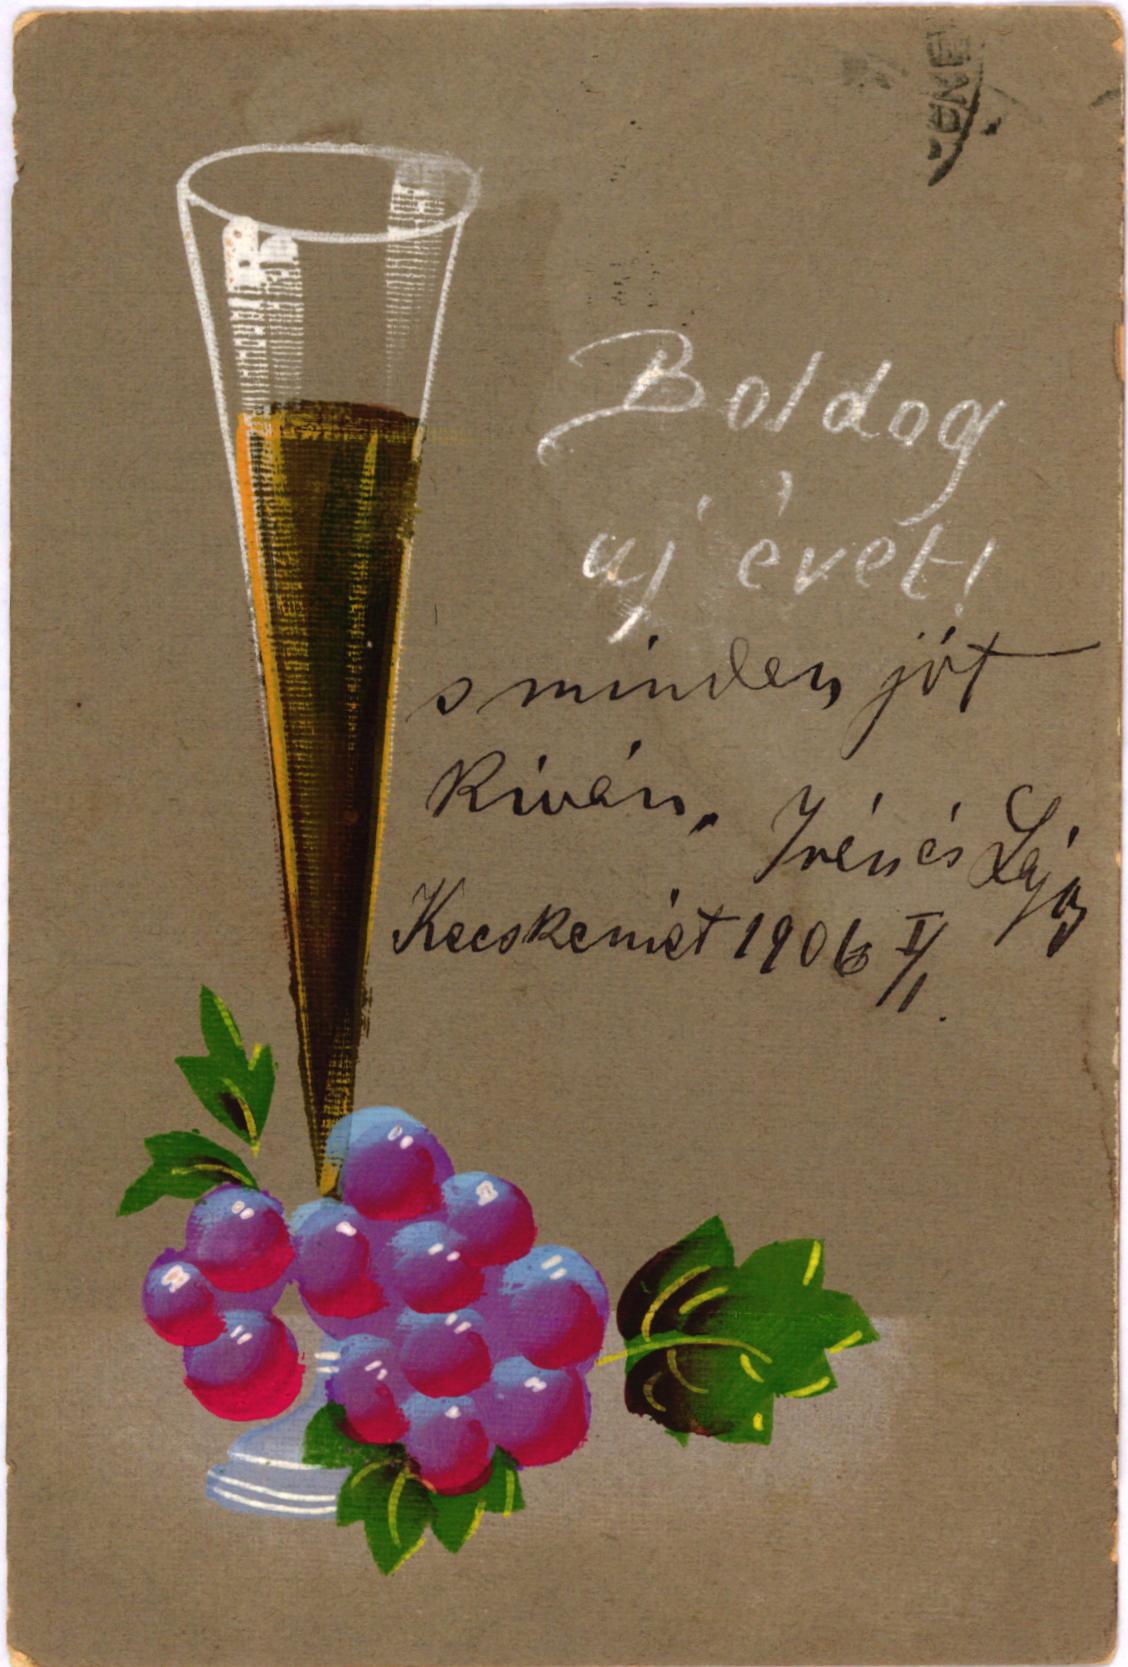 Boldog
uj évet!
s minden jót
Kíván,
Irén és Lajos
Kecskemét 1906 I/1.